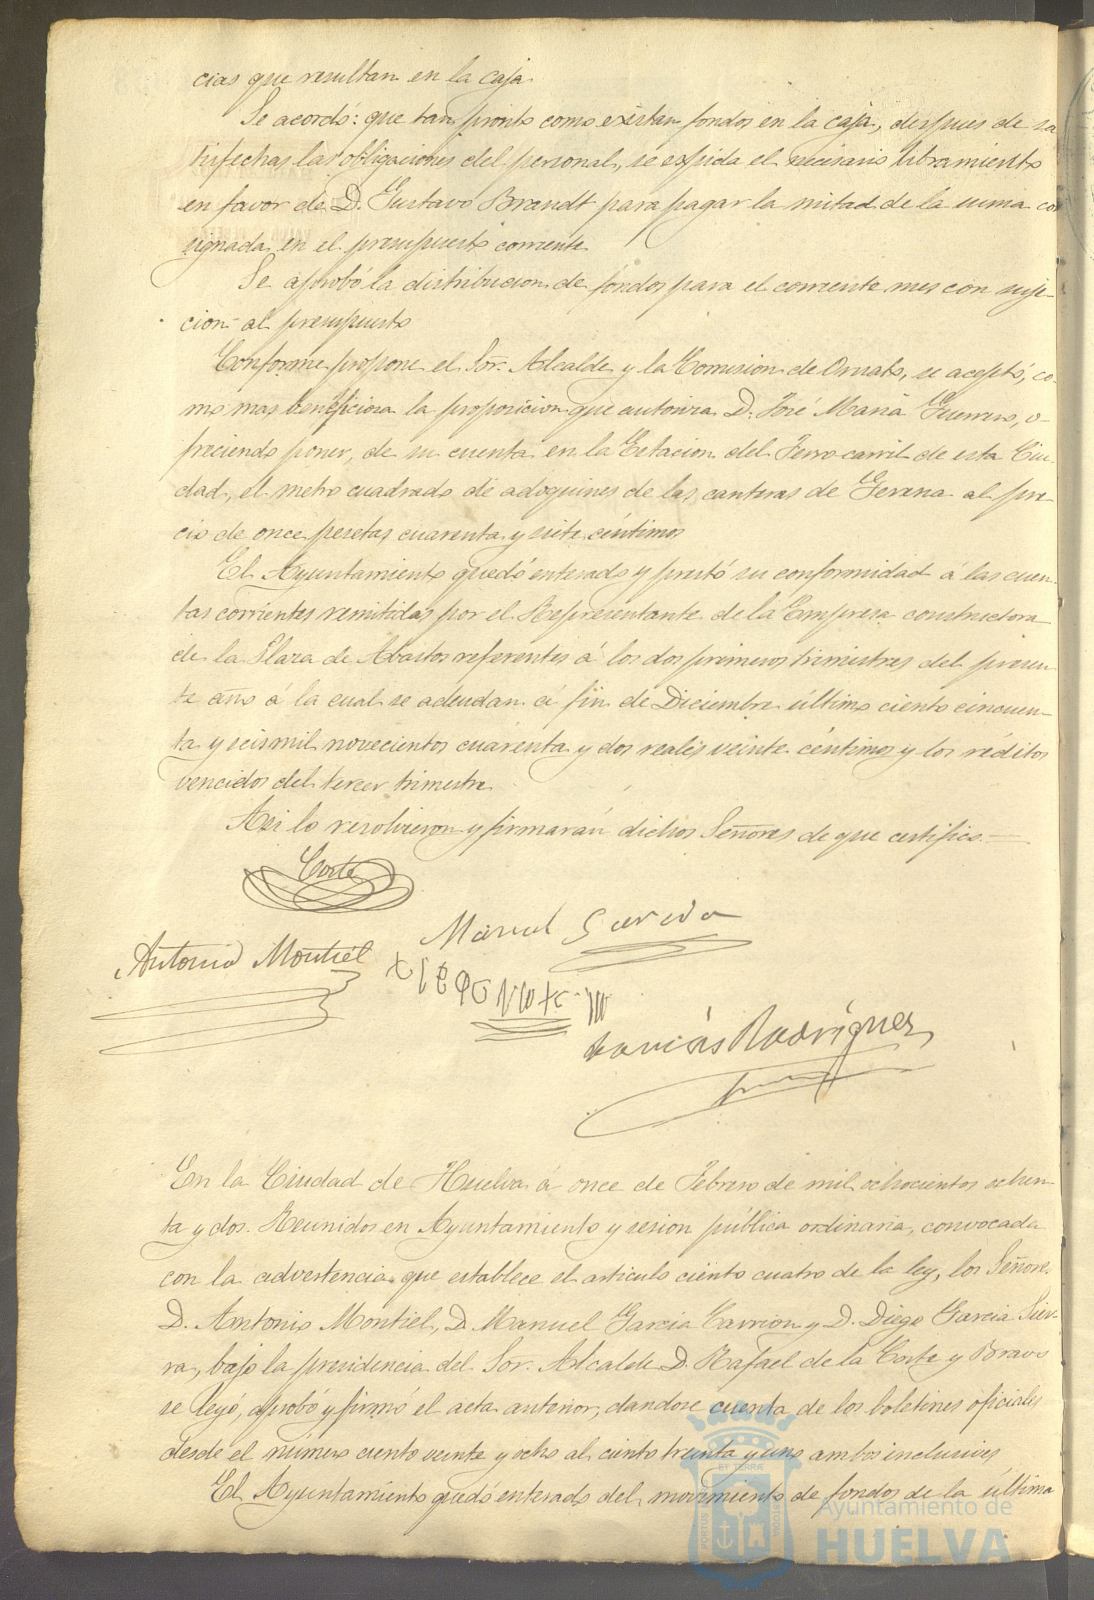 cias que resultan en la caja.
Se acordó: que tan pronto como existan fondos en la caja, despues de sa
tisfechas las obligaciones del personal, se expida el necesario libramiento
en favor de D. Gustavo Brandt para pagar la mitad de la suma con
signada en el presupuesto corriente.
Se aprobó la distribucion de fondos para el corriente mes con suje-
cion al presupuesto
Conforme propone el Sor. Alcalde y la Comision de Ornato, se aceptó, co-
mo mas beneficiosa la proposicion que autoriza D. José Maria Guerrero, o-
freciendo poner, de su cuenta en la Estacion del Ferro-carril de esta Ciu-
dad, el metro cuadrado de adoquines de las canteras de Gerena al pre-
cio de once pesetas cuarenta y siete céntimos
El Ayuntamiento quedó enterado y prestó su conformidad á las cuen-
tas corrientes remitidas por el Representante de la Empresa constructora
de la Plaza de Abastos referentes á los dos primeros trimestres del presen-
te año á la cual se adeudan á fin de Diciembre último ciento cincuen-
ta y seis mil novecientos cuarenta y dos reales veinte céntimos y los réditos
vencidos del tercer trimestre.
Asi lo resolvieron y firmarán dichos Señores de que certifico.
Corte
Manuel Garcia
Antonio Montiel
Rodriguez
En la Ciudad de Huelva á once de Febrero de mil ochocientos ochen-
ta y dos. Reunidos en Ayuntamiento y sesion pública ordinaria, convocada
con la advertencia que establece el articulo ciento cuatro de la ley, los Señores
D. Antonio Montiel, D. Manuel Garcia Carrion y D. Diego Garcia Sier-
ra, bajo la presidencia del Sor. Alcalde D. Rafael de la Corte y Bravo
se leyó, aprobó y firmó el acta anterior, dandose cuenta de los boletines oficiales
desde el número ciento veinte y ocho al ciento treinta y uno ambos inclusives
El Ayuntamiento quedó enterado del movimiento de fondos de la última
Ayuntamiento de
HUELVA